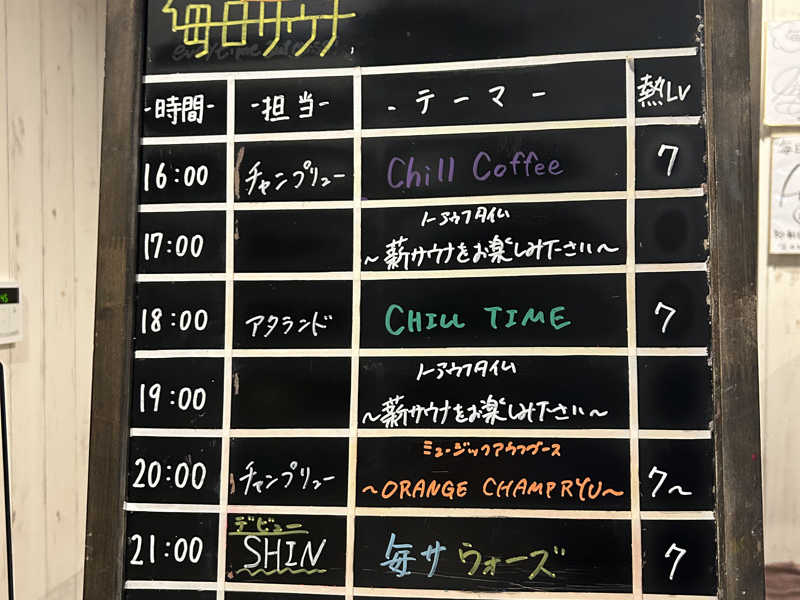 毎日サウナ
-時間- -担当- -テーマ- 熱Lv
16:00 チャンプリュー Chill Coffee 7
トーアウフタイム
17:00 ～薪サウナをお楽しみ下さい～
18:00 アタランド CHILL TIME 7
トーアウフタイム
19:00 ～薪サウナをお楽しみ下さい～
ミュージックアウフグース
20:00 チャンプリュー ～ORANGE CHAMPRYU～ 7～
デビュー
21:00 SHIN 毎サウォーズ 7